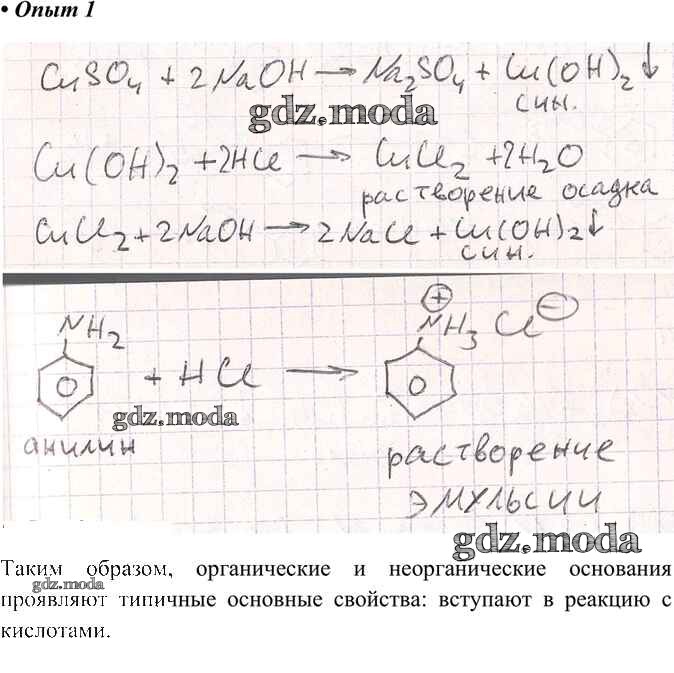 • Опыт 1
CuSO₄ + 2NaOH → Na₂SO₄ + Cu(OH)₂↓
син.
gdz.moda
Cu(OH)₂ + 2HCl → CuCl₂ + 2H₂O
растворение осадка
CuCl₂ + 2NaOH → 2NaCl + Cu(OH)₂↓
син.
gdz.moda
NH₂ + HCl → NH₃ Cl
+ −
gdz.moda
анилин
растворение
эмульсии
gdz.moda
Таким образом, органические и неорганические основания
gdz.moda
проявляют типичные основные свойства: вступают в реакцию с
кислотами.